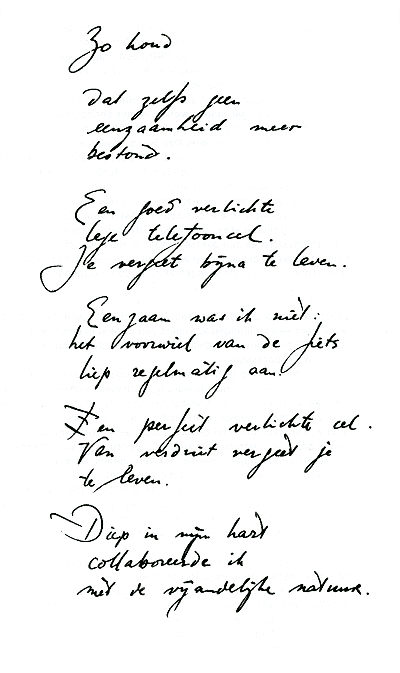 Zo koud
dat zelfs geen
eenzaamheid meer
bestond.
Een goed verlichte
lege telefooncel.
Je vergeet bijna te leven.
Eenzaam was ik niet:
het voorwiel van de fiets
liep regelmatig aan.
Een perfect verlichte cel.
Van verdriet vergeet je
te leven.
Diep in mijn hart
collaboreerde ik
met de vijandelijke natuur.